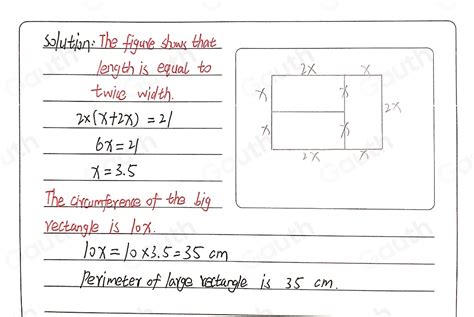 Solution: The figure shows that
length is equal to
twice width.
2x(x+2x) = 21
6x = 21
x = 3.5
The circumference of the big
rectangle is 10x.
10x = 10 x 3.5 = 35 cm
Perimeter of large rectangle is 35 cm.
2x x
x x 2x
x x
2x x